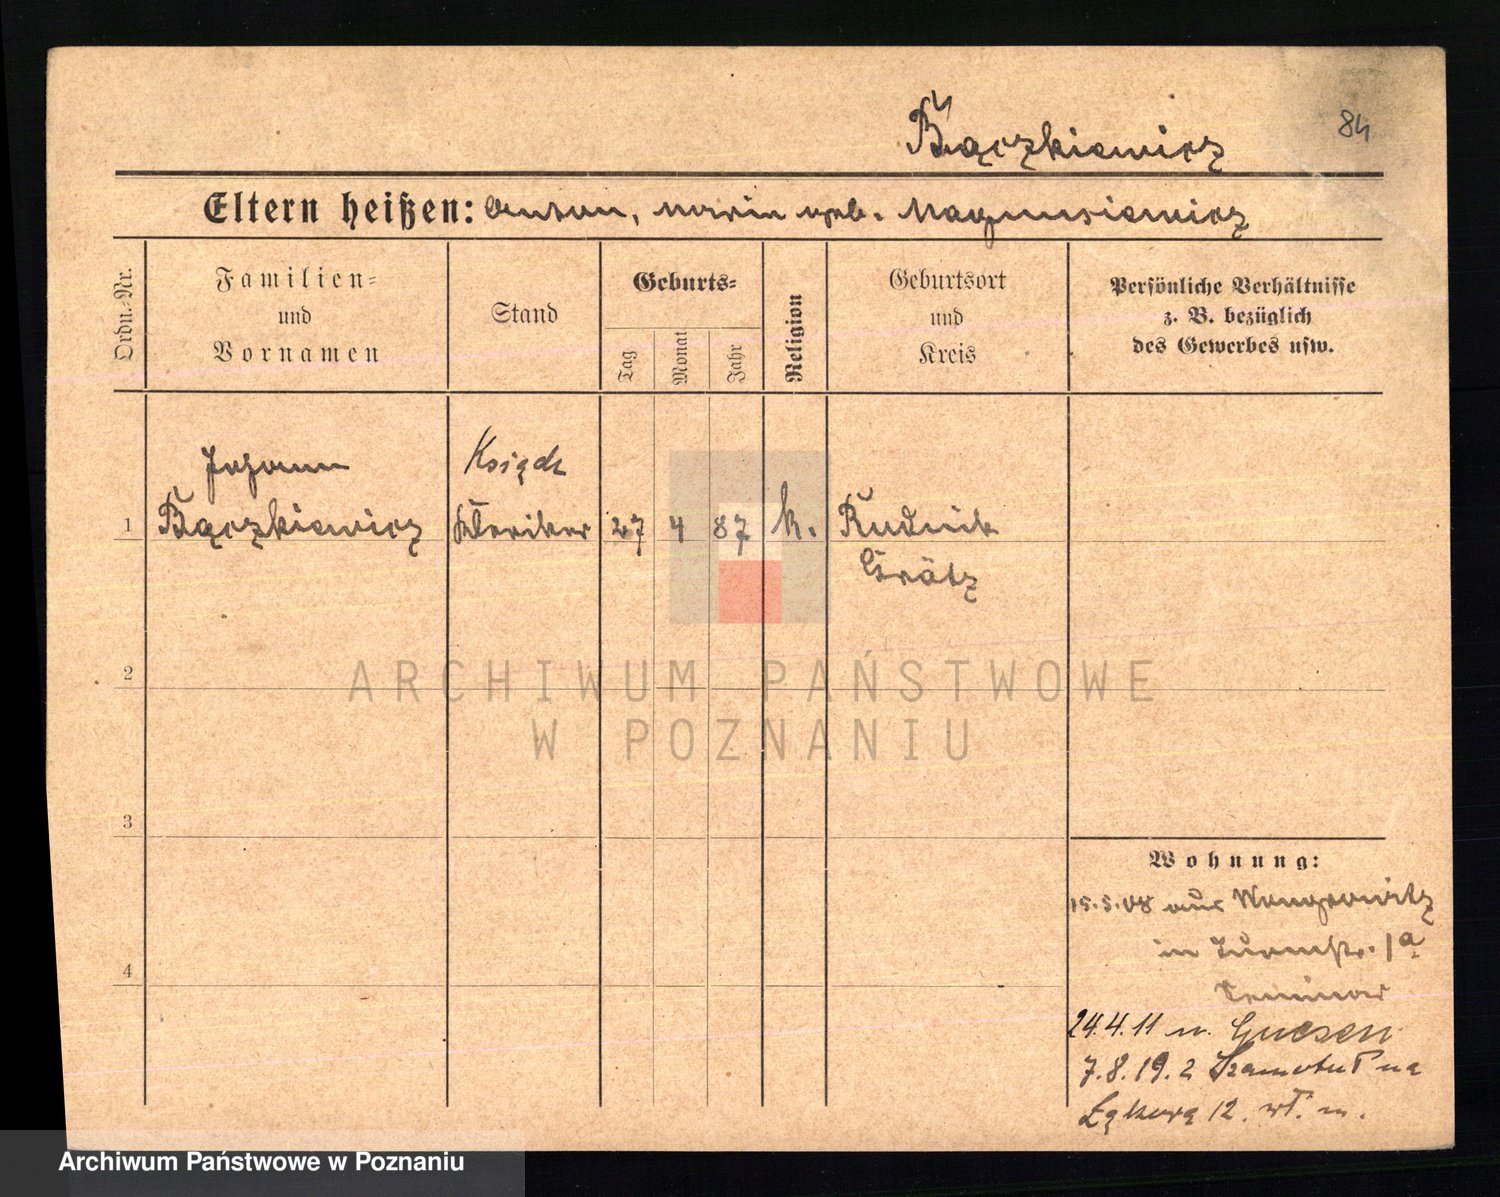 84
Bączkiewicz
Eltern heißen: Anton, Maria geb. Magnusiewicz
Ordn.-Nr.
Familien-
und
Vornamen
Stand
Geburts-
Tag
Monat
Jahr
Religion
Geburtsort
und
Kreis
Persönliche Verhältnisse
z. B. bezüglich
des Gewerbes usw.
Johann
Ksiądz
1 Bączkiewicz Kleriker 27 4 87 k. Rudnik
Grätz
2
3
4
ARCHIWUM PAŃSTWOWE
W POZNANIU
Wohnung:
15.5.08 aus Wongrowitz
in Turmstr. 1a
Seminar
24.4.11 n. Gnesen
7.8.19. z Szamotuł na
Łąkową 12. wł. m.
Archiwum Państwowe w Poznaniu